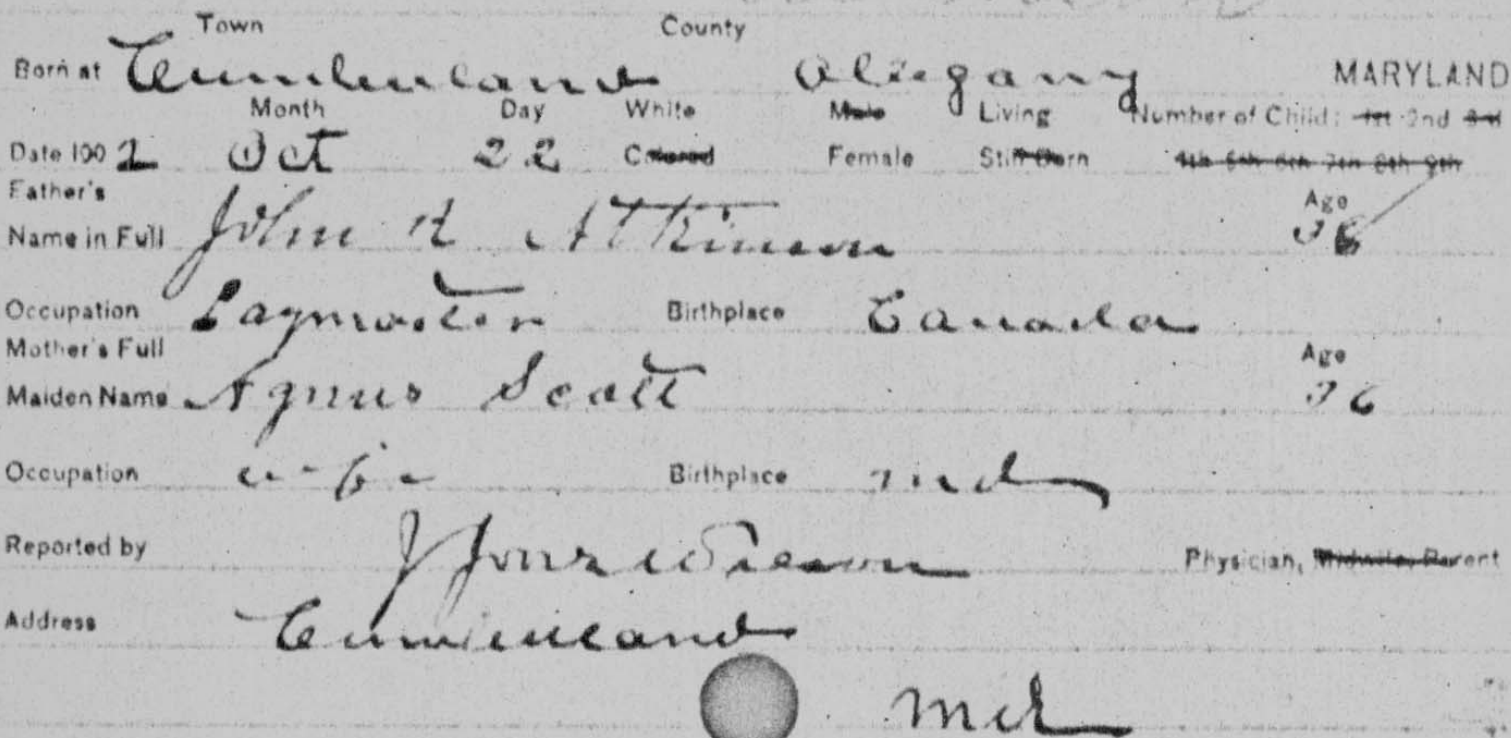 Town County
Born at Cumberland Allegany MARYLAND
Month Day White Male Living Number of Child: 1st 2nd 3rd
Date 190 2 Oct 22 Colored Female Still Born 4th 5th 6th 7th 8th 9th
Father's Age
Name in Full John R Atkinson
Occupation Paymaster Birthplace Canada
Mother's Full Age
Maiden Name Agnus Scott 36
Occupation wife Birthplace Md
Reported by J Jones Wilson Physician, Midwife, Parent
Address Cumberland
Md